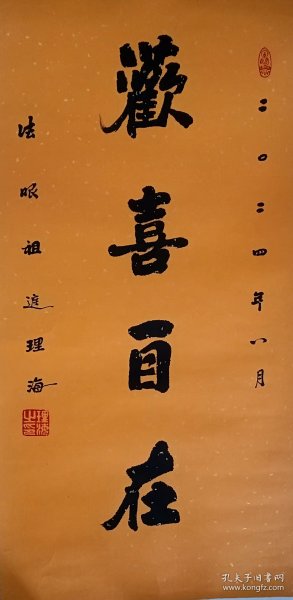 二〇二四年八月
歡喜自在
法眼祖庭理海
理海之印
孔夫子旧书网
www.kongfz.com